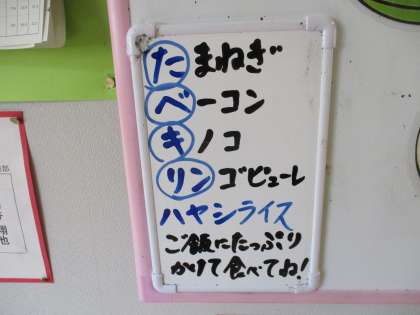 たまねぎ
ベーコン
キノコ
リンゴピューレ
ハヤシライス
ご飯にたっぷり
かけて食べてね!